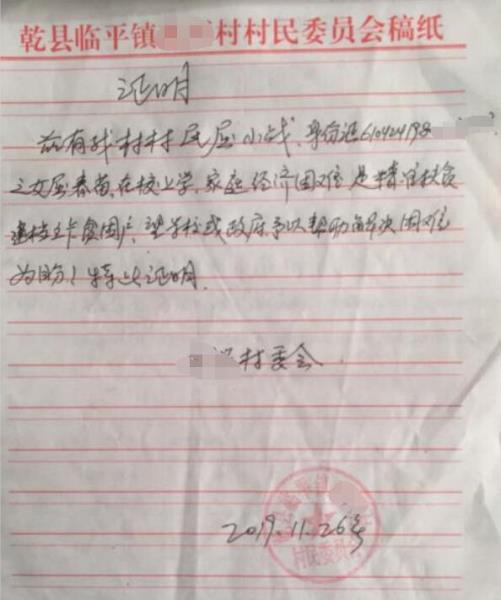 乾县临平镇 村村民委员会稿纸
证明
兹有我村村民屈小战、身份证610424198
之女屈春苗、在校上学、家庭经济困难是精准扶贫
建档立卡贫困户、望学校或政府予以帮助解决困难
为盼！特此证明.
村委会
2019.11.26号
县临平镇
村民委员会